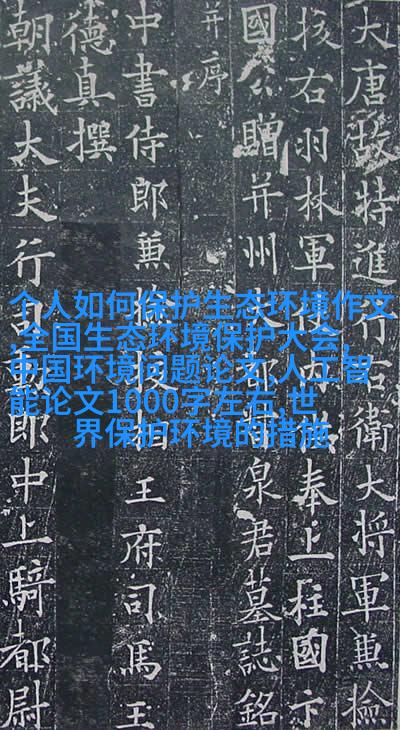 大唐故特進行右衛大將軍兼檢
校右羽林軍仗內供奉上柱國卞
國公贈并州大都督泉君墓誌銘
并序
中書侍郎兼檢校相王府司馬王
德真撰
朝議大夫行司勳郎中上騎都尉
个人如何保护生态环境作文
,全国生态环境保护大会,
中国环境问题论文,人工智
能论文1000字左右,世
界保护环境的措施